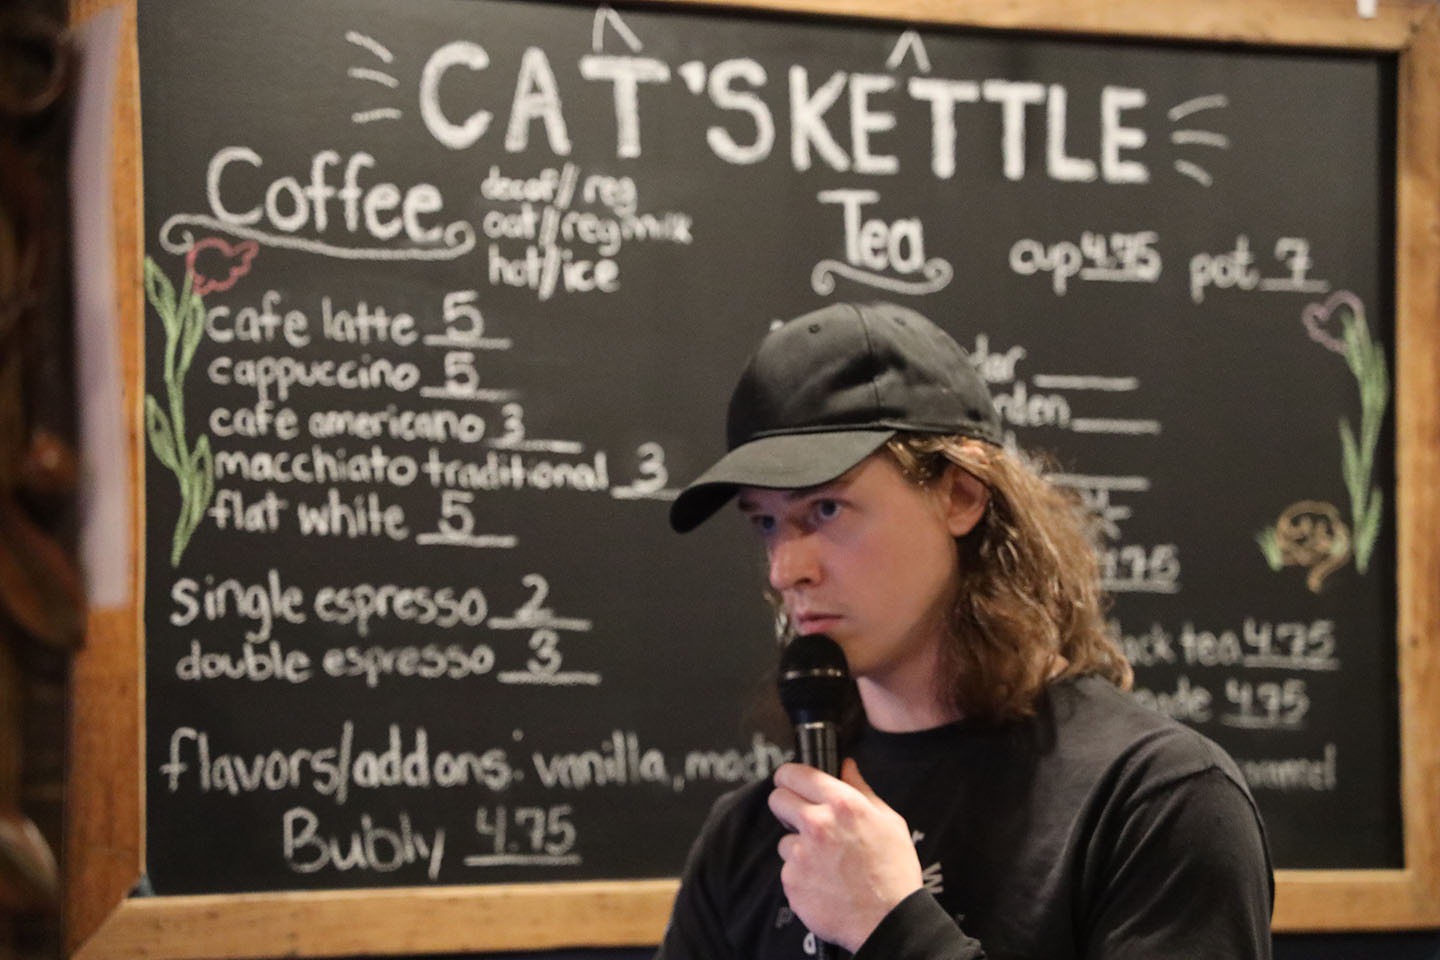 CAT'S KETTLE
Coffee
decaf/reg
oat/reg milk
hot/ice
cafe latte 5
cappuccino 5
cafe americano 3
macchiato traditional 3
flat white 5
single espresso 2
double espresso 3
flavors/addons: vanilla,
Bubly 4.75
Tea
cup 4.75 pot 7
4.75
tea 4.75
4.75